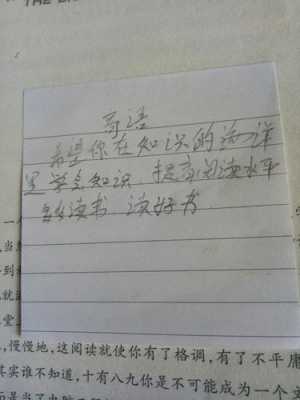 寄语
希望你在知识的海洋
里学会知识 提高阅读水平
多读书 读好书
慢慢地,这阅读就使你有了格调,有了不平庸
其实谁不知道,十有八九你是不可能成为一个